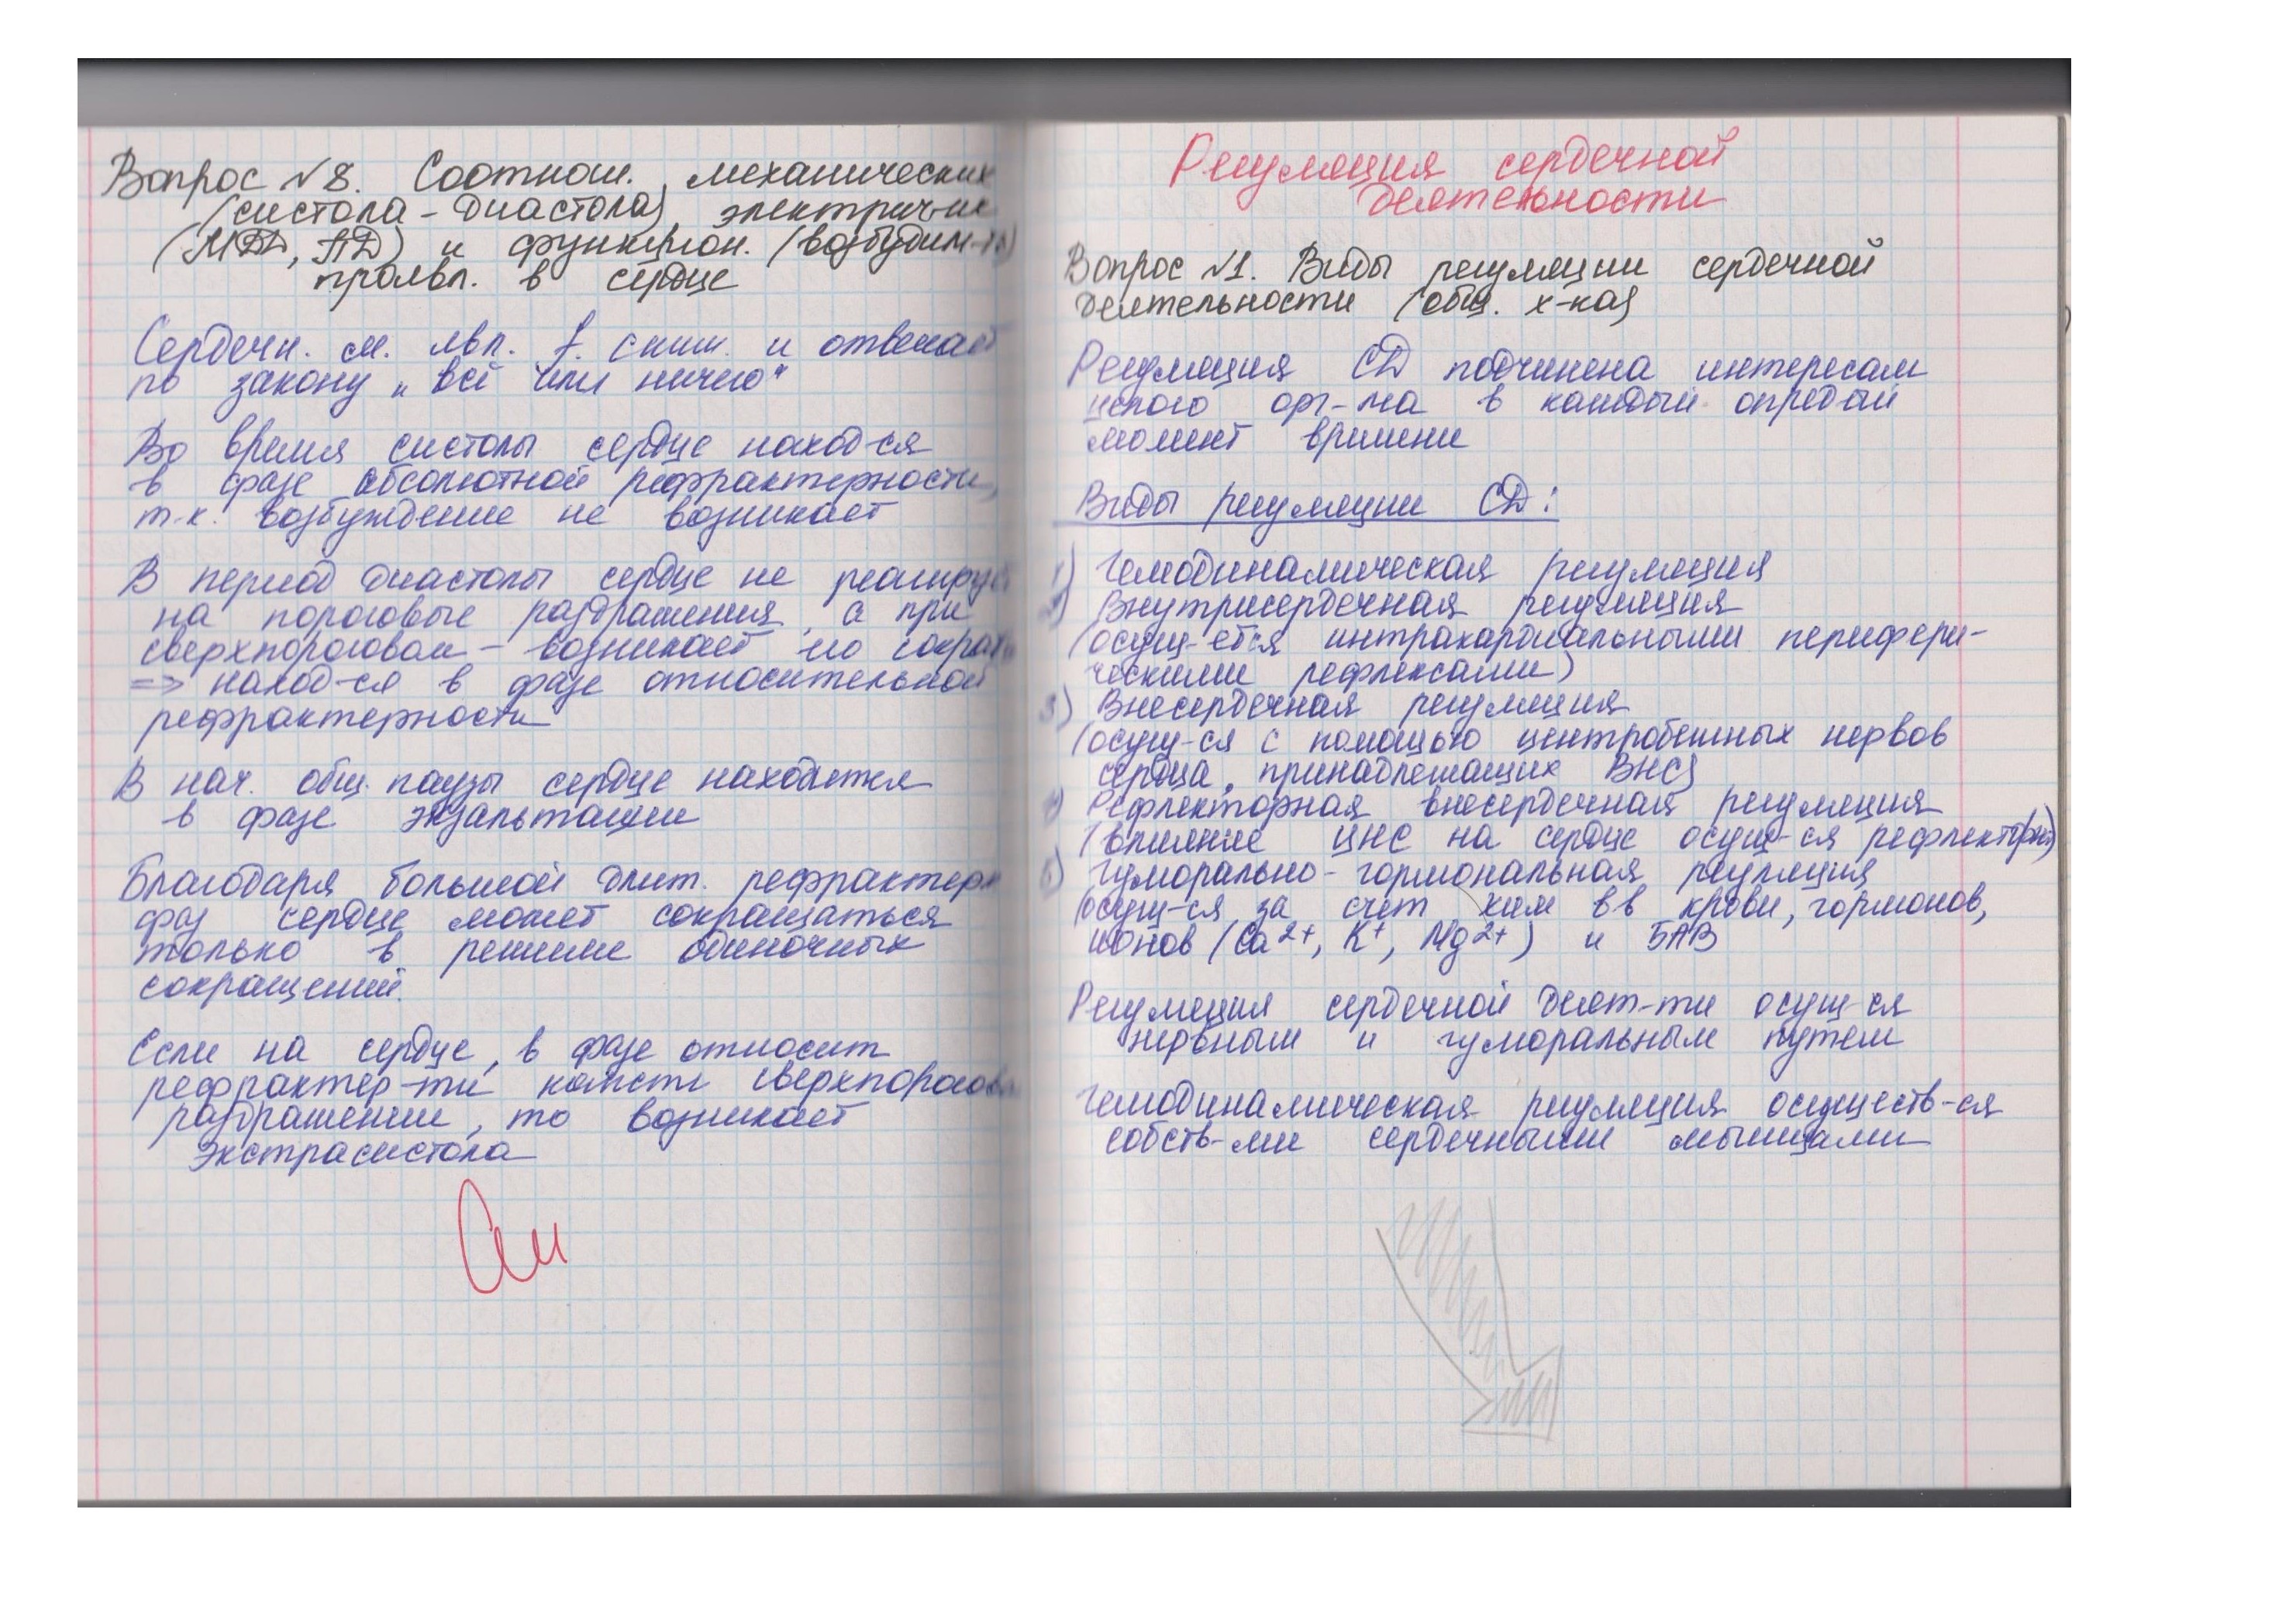 Вопрос №8. Соотнош. механических
(систола - диастола), электрич-их
(МПД, ПД) и функцион. (возбудим-ть)
проявл. в сердце
Сердечн. м. явл. f. синц. и отвечает
по закону "всё или ничего"
Во время систолы сердце наход-ся
в фазе абсолютной рефрактерности,
т.к. возбуждение не возникает
В период диастолы сердце не реагирует
на пороговые раздражения, а при
сверхпороговом - возникает его сокращ
=> наход-ся в фазе относительной
рефрактерности
В нач. общ. паузы сердце находится
в фазе экзальтации
Благодаря большой длит. рефрактерн
фаз сердце может сокращаться
только в режиме одиночных
сокращений.
Если на сердце, в фазе относит
рефрактер-ти нанести сверхпорогов
раздражение, то возникает
экстрасистола
Регуляция сердечной
деятельности
Вопрос №1. Виды регуляции сердечной
деятельности (общ. х-ка)
Регуляция СД подчинена интересам
целого орг-ма в каждый опред-ый
момент времени
Виды регуляции СД:
1) Гемодинамическая регуляция
2) Внутрисердечная регуляция
(осущ-ется интракардиальными перифери-
ческими рефлексами)
3) Внесердечная регуляция
(осущ-ся с помощью центробежных нервов
сердца, принадлежащих ВНС)
4) Рефлекторная внесердечная регуляция
(влияние ЦНС на сердце осущ-ся рефлекторно)
5) Гуморально-гормональная регуляция
(осущ-ся за счет хим в в крови, гормонов,
ионов (Ca2+, K+, Mg2+) и БАВ
Регуляция сердечной деят-ти осущ-ся
нервным и гуморальным путем
Гемодинамическая регуляция осуществ-ся
собств-ми сердечными мышцами